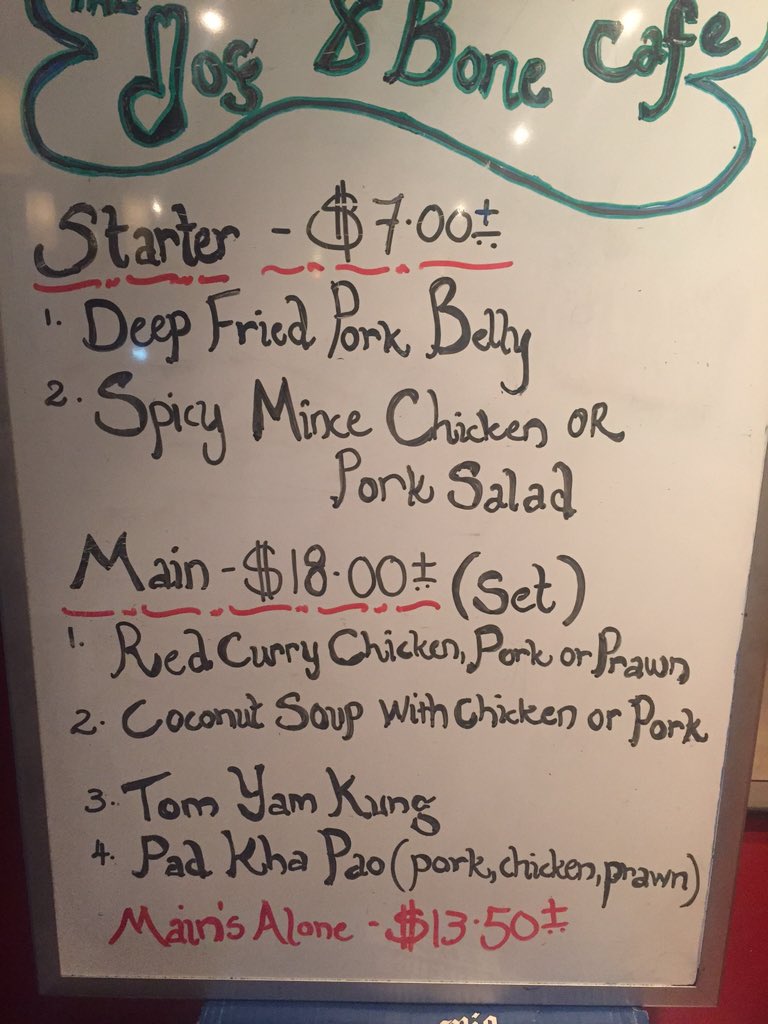 THE
Dog & Bone Cafe
Starter - $7.00±
1. Deep Fried Pork Belly
2. Spicy Mince Chicken OR
Pork Salad
Main - $18.00± (Set)
1. Red Curry Chicken, Pork or Prawn
2. Coconut Soup with Chicken or Pork
3. Tom Yam Kung
4. Pad Kha Pao (pork, chicken, prawn)
Main's Alone - $13.50±